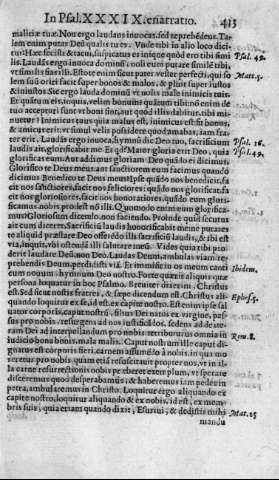 In Psal. XXXIX. enarratio. 413
malitiæ tuæ. Non ergo laudans inuocas, sed reprehēdens. Ta-
lem enim putas Deū qualis tu es. Vnde tibi in alio loco dici-
tur: Hæc fecisti & tacui, suspicatus es inique quòd ero tibi simi Psal. 49.
lis. Laudās ergo inuoca dominū, noli eum putare simile tibi,
vt similis fias illi. Estote enim sicut pater vester perfecti, qui so Mat. 5.
lem suū oriri facit super bonos & malos, & pluit super iustos
& iniustos Sic ergo lauda dominū vt nolis male inimicis tuis.
Et quātum eis, inquis, velim bonū? quātum tibi: nō enim de
tuo accepturi sunt vt boni fiant, aut quod illis dabitur, tibi mi
nuetur? Inimicus tuus quia malus est, inimicus est: fit bonus,
& amicus erit: vt simul velis possidere quod amabas, iam fra-
ter erit. Laudās ergo inuoca, hymnū dic Deo tuo, sacrificium Psal. 16.
laudis inquit glorificabit me. Et qd? Maior gloria erit Deo, quia Psal. 49.
glorificas eum? Aut addimus gloriam Deo quādo ei dicimus,
Glorifico te Deus meus: aut sanctiorem eum facimus quando
dicimus Benedico te Deus meus? Ipse quādo nos benedicit, fa-
cit nos sanctiores, facit nos feliciores: quādo nos glorificat, fa-
cit nos gloriosiores, facit nos honoratiores. quādo eum glori-
ficamus, nobis prodest nō illi. Quomodo enim eum glorifica-
mus? Gloriosum dicendo, non faciendo. Proinde quid secutus
ait cum diceret, Sacrificiū laudis honorificabit me? ne putares
te aliquid præstare Deo offerēdo illi sacrificiū laudis, & ibi est
via, inquit, vbi ostēdā illi salutare meū. Vides quia tibi pro-
derit laudare Deū, non Deo. Laudas Deum, ambulas viam: re-
prehendis Deum, perdidisti viā. Et immisit in os meum canti ibidem.
cum nouum, hymnum Deo nostro. Forte quærit aliquis quæ
persona loquatur in hoc Psalmo. Breuiter dixerim, Christus
est. Sed sicut nostis fratres, & sæpe dicendum est, Christus ali-
quando loquitur ex se, id est ex capite nostro. Est enim ipse sal Ephes. 5.
uator corporis, caput nostrū, filius Dei natus ex virgine, pas-
sus pro nobis, resurgens ad nos iustificādos, sedens ad dexte-
ram Dei ad interpellandum pro nobis, retributurus omnia in Rom. 8.
iudicio bona bonis, mala malis. Caput nostrum ille caput di-
gnatus est corporis fieri, carnem assumēdo à nobis, in qua mo
reretur pro nobis, quam etiā resuscitauit propter nos, vt in il-
la carne resurrectionis nobis præberet exemplum, vt sperare
disceremus quod desperabamus, & haberemus iam pedes in
petra, ambularemus in Christo. Loquitur ergo aliquando ex
capite nostro, loquitur aliquando & ex nobis, id est, ex mem-
bris suis, quia etiam quando dixit, Esuriui, & dedistis mihi Mat. 25
mandu